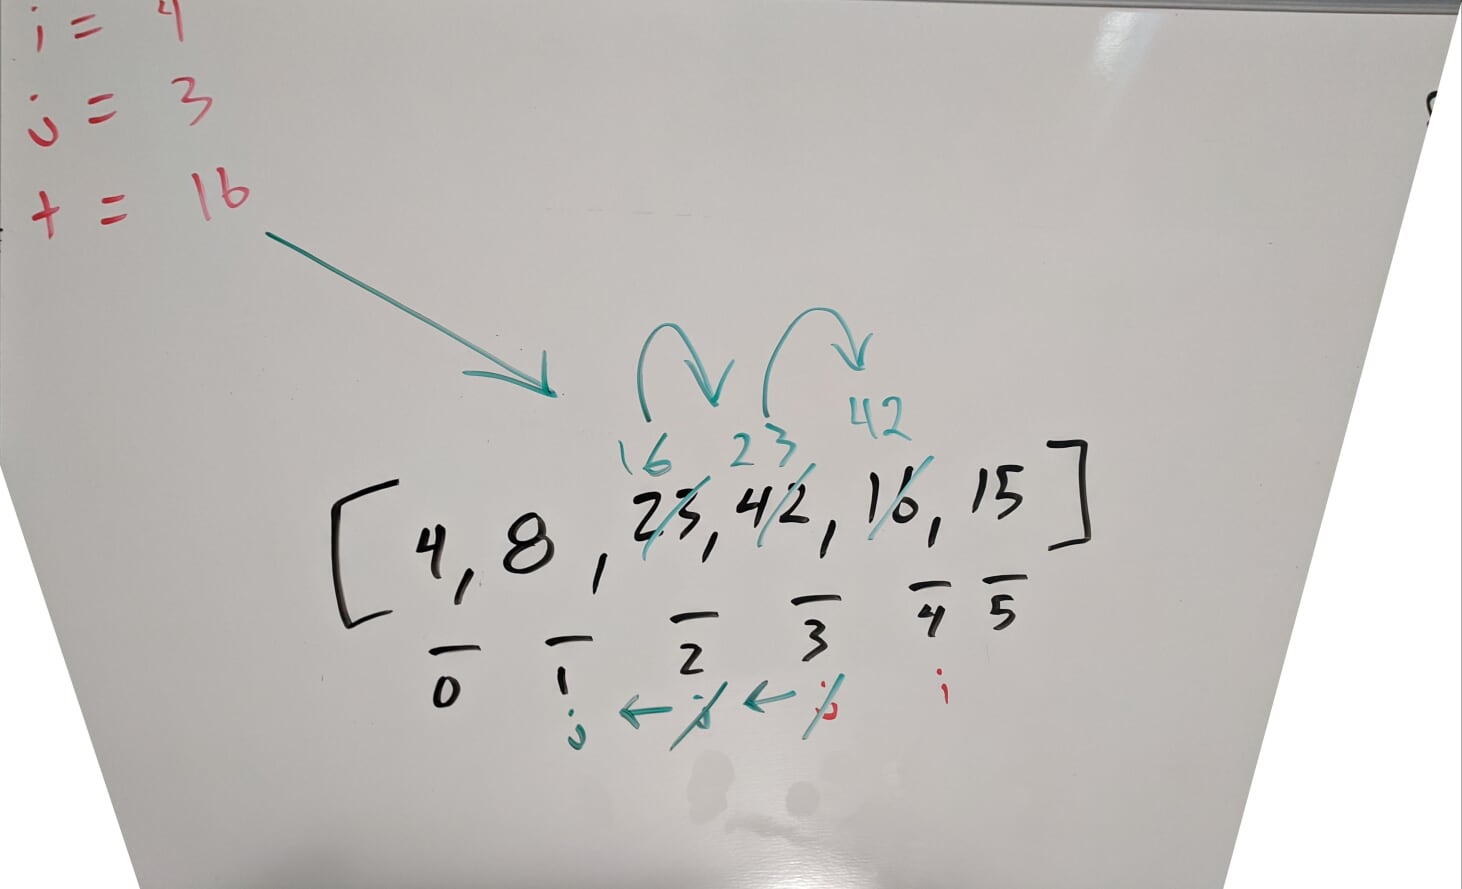 i = 4
j = 3
t = 16
42
16 23
[4, 8, 23, 42, 16, 15]
0 1 2 3 4 5
j ← j ← j i